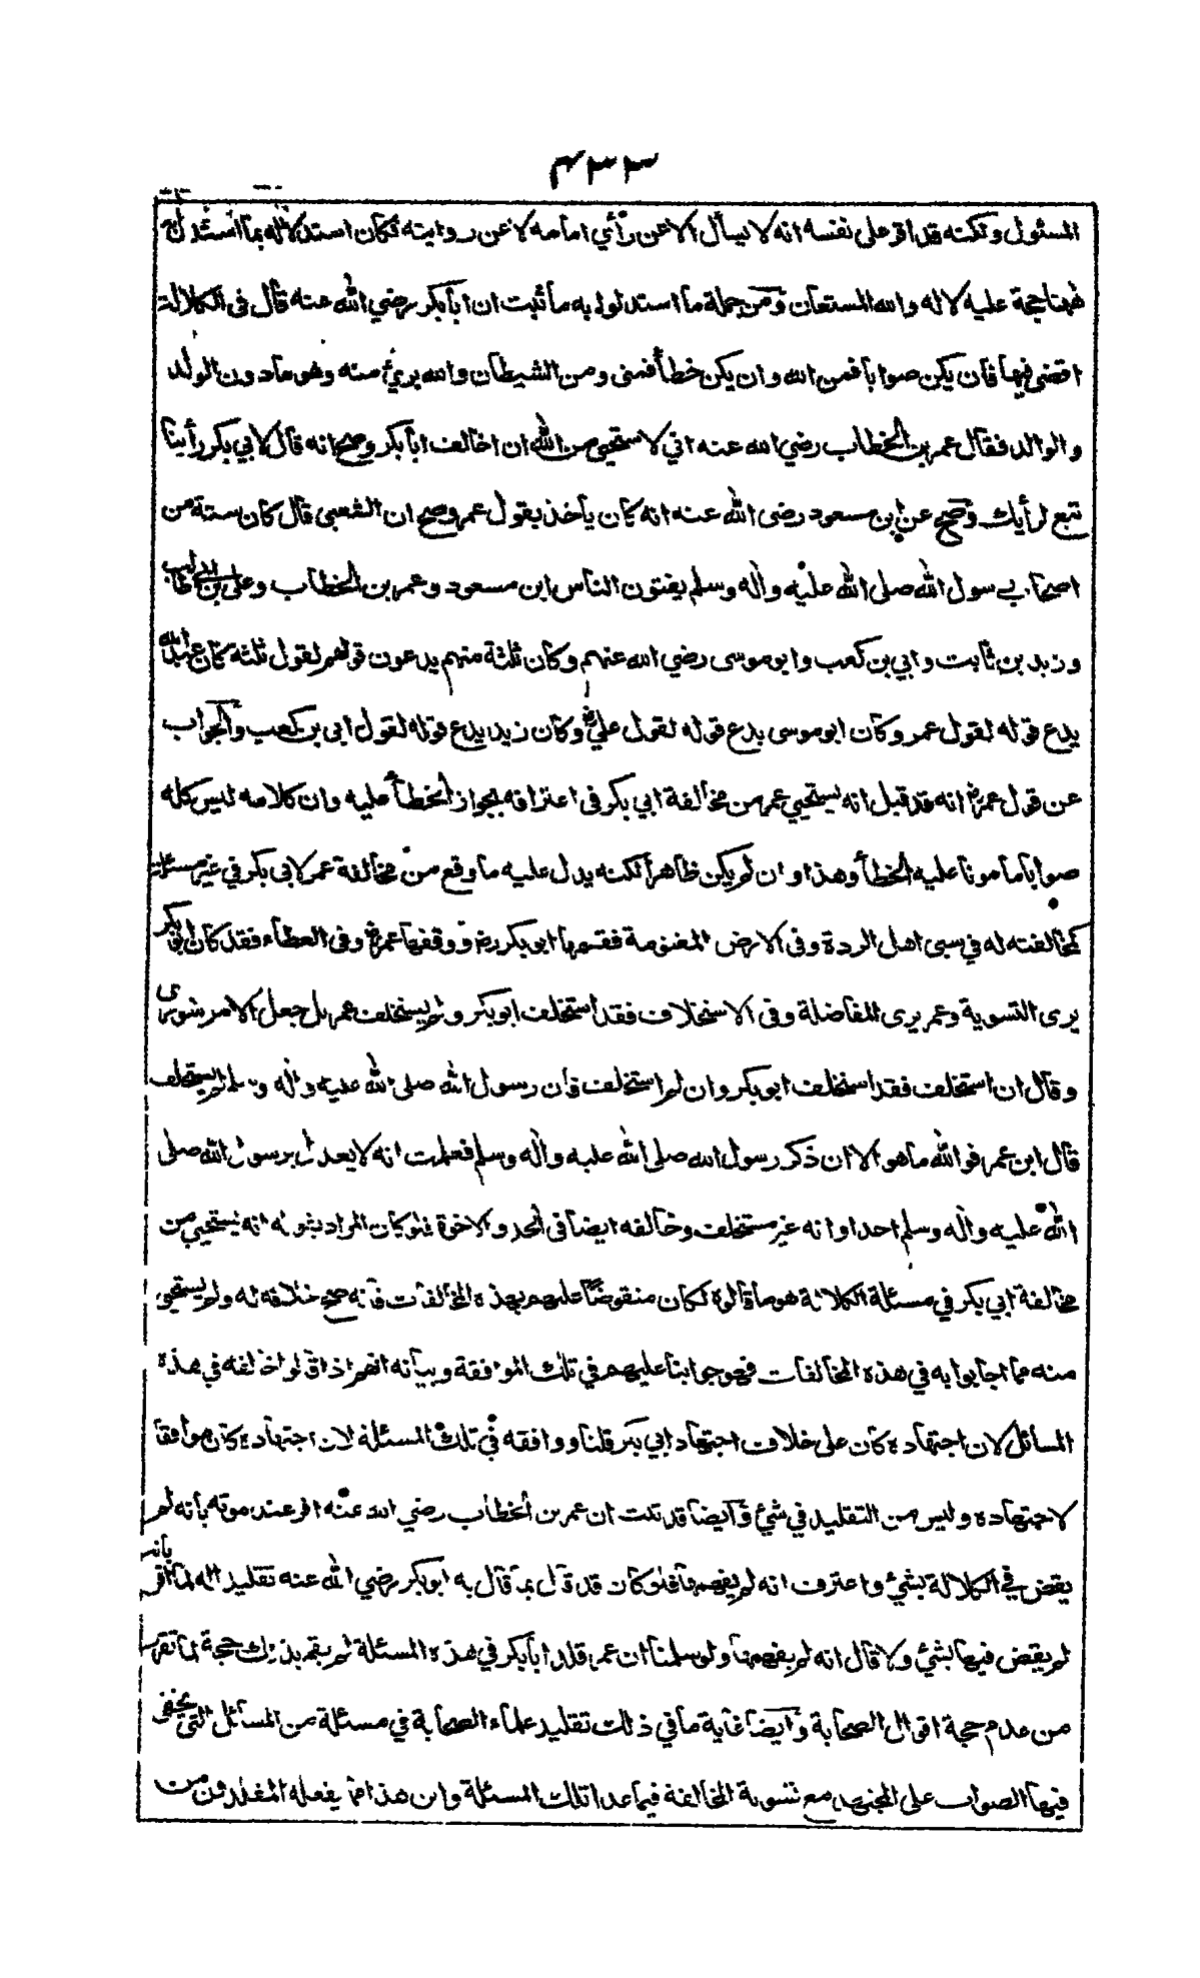 ٤٣٣
المسئول ولكنه قد اقر على نفسه انه لا يسأل الا عن رأي امامه لا عن روايته فكان استدلاله بما استدل به
ههنا حجة عليه لا له والله المستعان ومن جملة ما استدلوا به ما ثبت ان ابا بكر رضي الله عنه قال في الكلالة
اقضي فيها فان يكن صوابا فمن الله وان يكن خطأ فمنى ومن الشيطان والله بريء منه وهو ما دون الولد
والوالد فقال عمر بن الخطاب رضي الله عنه اني لاستحيي من الله ان اخالف ابا بكر وصح انه قال لابي بكر رأينا
تبع لرأيك وصح عن ابن مسعود رضى الله عنه انه كان يأخذ بقول عمر وصح ان الشعبى قال كان ستة من
اصحاب رسول الله صلى الله عليه واله وسلم يفتون الناس ابن مسعود وعمر بن الخطاب وعلي بن ابي طالب
وزيد بن ثابت وابي بن كعب وابو موسى رضي الله عنهم وكان ثلثة منهم يدعون قولهم لقول ثلثة كان عبد الله
يدع قوله لقول عمر وكان ابو موسى يدع قوله لقول علي رض وكان زيد يدع قوله لقول ابى بن كعب والجواب
عن قول عمر رض انه قد قيل انه يستحيي عمر من مخالفة ابي بكر فى اعترافه بجواز الخطأ عليه وان كلامه ليس كله
صوابا مامونا عليه الخطأ وهذا وان لم يكن ظاهرا لكنه يدل عليه ما وقع من مخالفة عمر لابى بكر في غير مسئلة
كمخالفته له في سبى اهل الردة وفى الارض المغنومة فقسمها ابو بكر رض ووقفها عمر رض وفى العطاء فقد كان ابو بكر
يرى التسوية وعمر يرى المفاضلة وفى الاستخلاف فقد استخلف ابو بكر ولم يستخلف عمر بل جعل الامر شورى
وقال ان استخلف فقد استخلف ابو بكر وان لم استخلف فان رسول الله صلى الله عليه واله وسلم لم يستخلف
قال ابن عمر فوالله ما هو الا ان ذكر رسول الله صلى الله عليه واله وسلم فعلمت انه لا يعدل برسول الله صلى
الله عليه واله وسلم احدا وانه غير مستخلف وخالفه ايضا فى الجد والاخوة فلو كان المراد بقوله انه يستحيي من
مخالفة ابي بكر في مسئلة الكلالة هو ما قالوه لكان منقوضا عليهم بهذه المخالفات فانه صح خلافه له ولم يستحيي
منه فما اجابوا به في هذه المخالفات فهو جوابنا عليهم في تلك الموافقة وبيانه انهم اذا قالوا خالفه في هذه
المسائل لان اجتهاده كان على خلاف اجتهاد ابي بكر قلنا ووافقه في تلك المسئلة لان اجتهاده كان موافقا
لاجتهاده وليس من التقليد في شئ وايضا قد ثبت ان عمر بن الخطاب رضي الله عنه اقر عند موته بأنه لم
يقض في الكلالة بشئ واعترف انه لم يفهمها فلو كان قد قال بما قال به ابو بكر رضي الله عنه تقليدا له لما اقر بانه
لم يقض فيها بشئ ولا قال انه لم يفهمها ولو سلمنا ان عمر قلد ابا بكر في هذه المسئلة لم يقم بذلك حجة لما تقرر
من عدم حجة اقوال الصحابة وايضا غاية ما في ذلك تقليد علماء الصحابة في مسئلة من المسائل التى يخفى
فيها الصواب على المجتهد مع تسوية المخالفة فيما عدا تلك المسئلة واين هذا مما يفعله المقلدون من